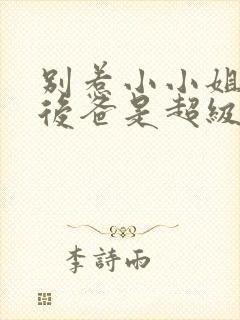 別惹小小姐
後爸是超級
李詩雨